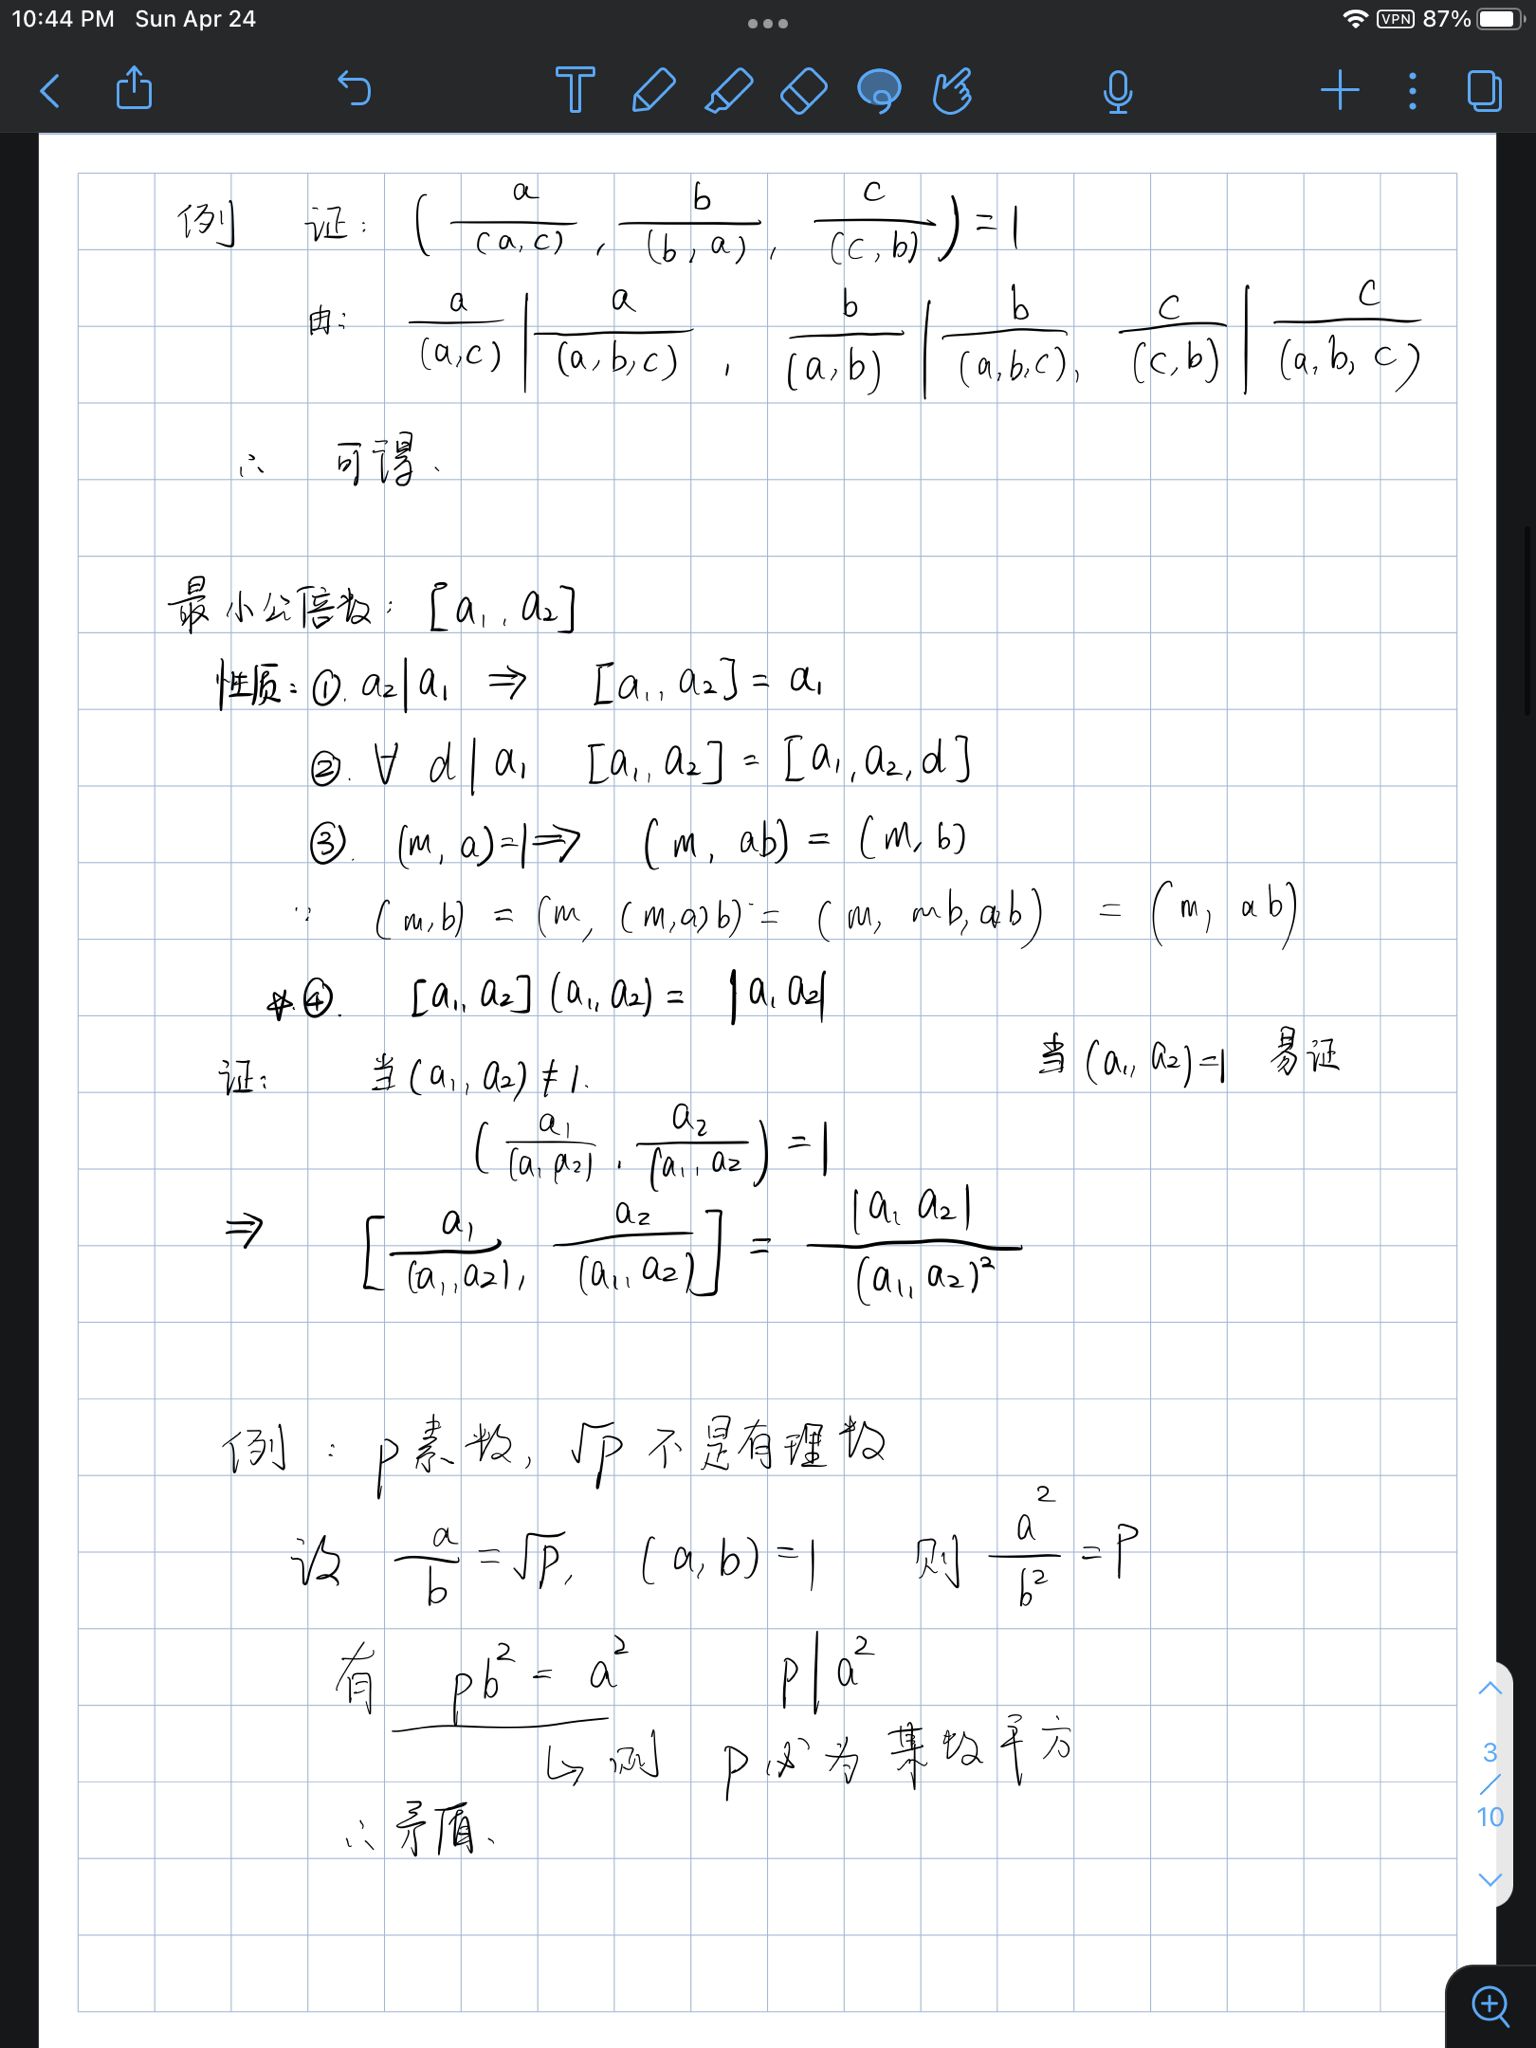 10:44 PM Sun Apr 24 VPN 87%
例 证: (a/(a,c), b/(b,a), c/(c,b)) = 1
由: a/(a,c) | a/(a,b,c), b/(a,b) | b/(a,b,c), c/(c,b) | c/(a,b,c)
∴ 可得.
最小公倍数: [a₁, a₂]
性质: ①. a₂|a₁ ⇒ [a₁, a₂] = a₁
②. ∀ d | a₁ [a₁, a₂] = [a₁, a₂, d]
③. (m, a)=1 ⇒ (m, ab) = (m, b)
∵ (m,b) = (m, (m,a)b) = (m, mb, ab) = (m, ab)
* ④. [a₁, a₂] (a₁, a₂) = |a₁ a₂|
证: 当(a₁, a₂) ≠ 1. 当(a₁, a₂)=1 易证
(a₁/(a₁ a₂), a₂/(a₁, a₂) = 1
⇒ [a₁/(a₁, a₂), a₂/(a₁, a₂)] = |a₁ a₂|/(a₁, a₂)²
例: p素数, √p 不是有理数
设 a/b = √p, (a,b)=1 则 a²/b² = p
有 pb² = a² p|a²
↳ 则 p必为某数平方
∴矛盾.
3
/
10